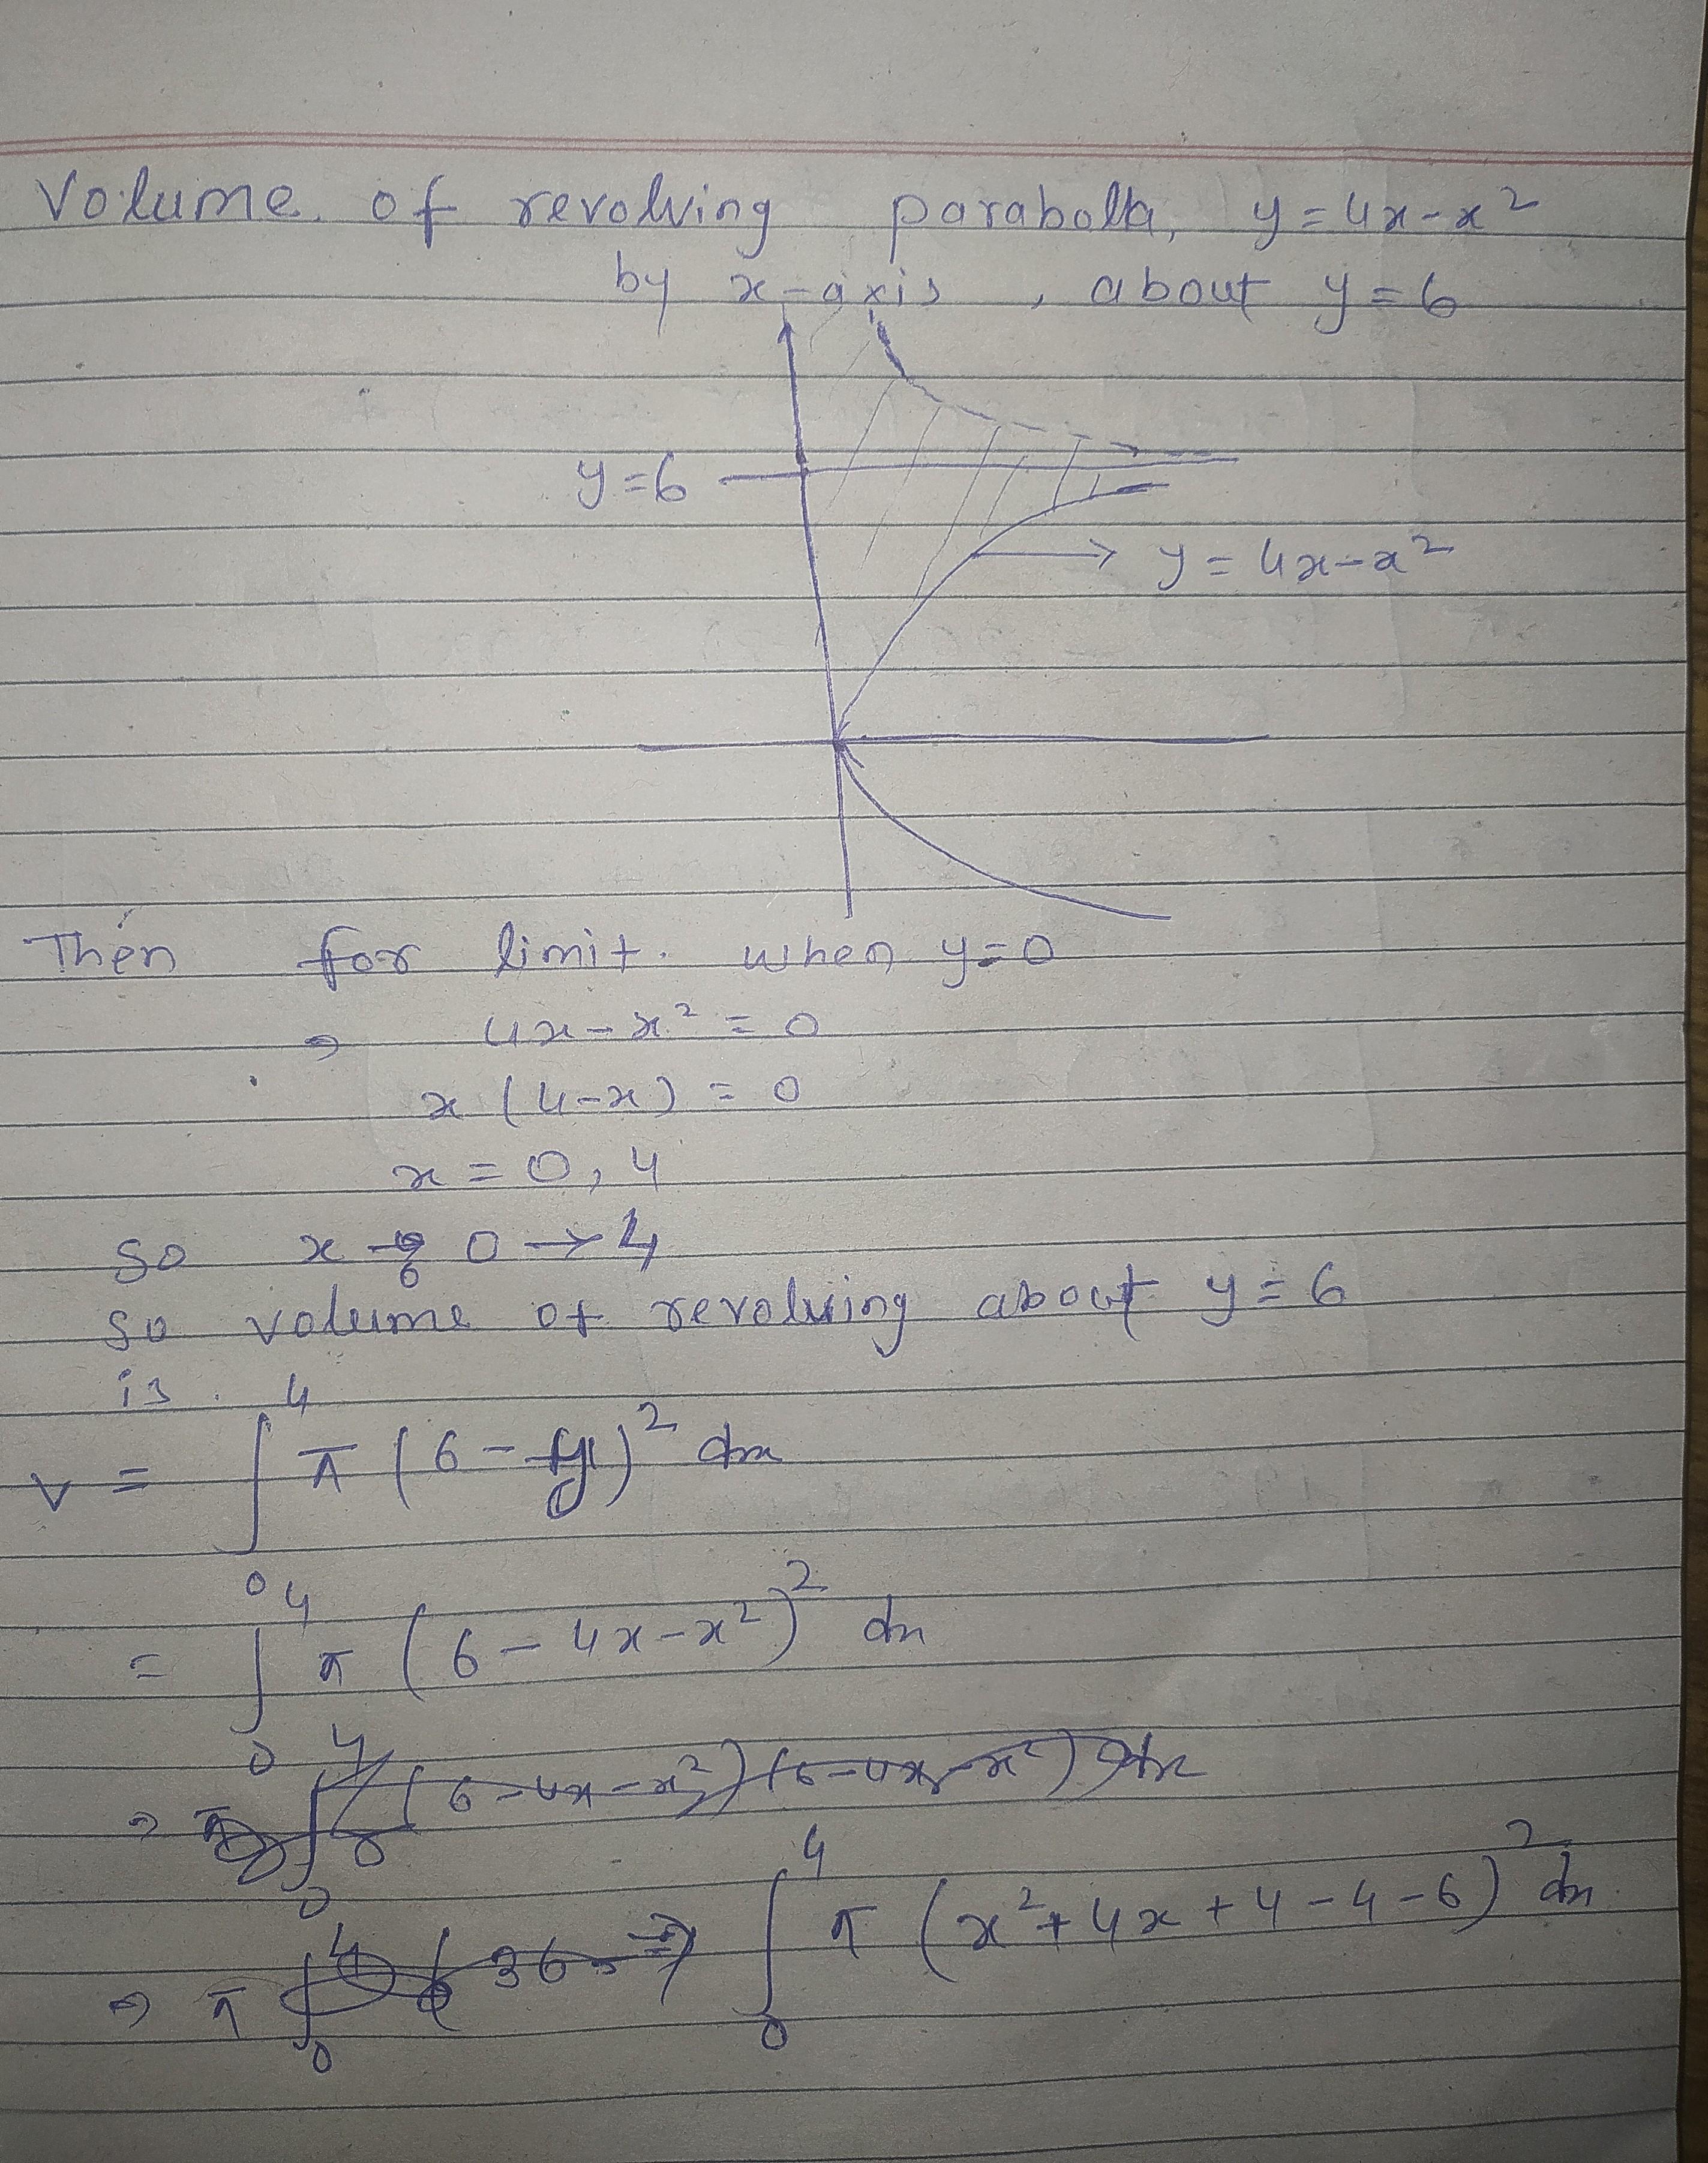 Volume of revolving parabolla, y = 4x - x²
by x-axis, about y = 6
y = 6
→ y = 4x - x²
Then for limit. when y = 0
⇒ 4x - x² = 0
x (4 - x) = 0
x = 0, 4
so x 0 → 4
so volume of revolving about y = 6
is
v = ∫₀⁴ π (6 - y)² dx
= ∫₀⁴ π (6 - 4x - x²)² dx
⇒ π ∫₀⁴ (6 - 4x - x²) (6 - 4x - x²) dx
⇒ π ∫₀⁴ ( 36 ⇒ ∫₀⁴ π (x² + 4x + 4 - 4 - 6)² dx